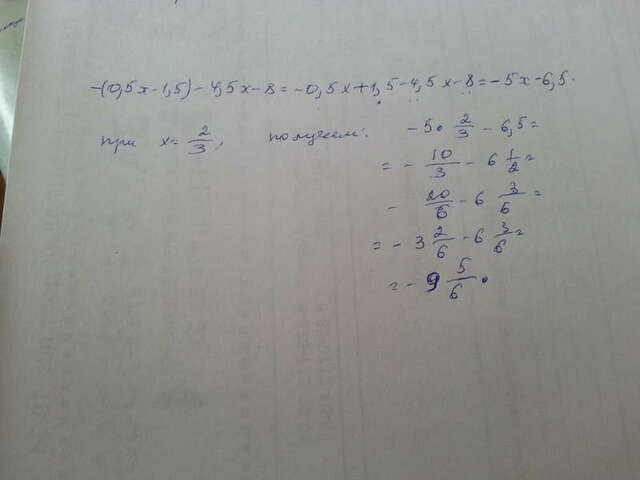 -(0,5x-1,5)-4,5x-8=-0,5x+1,5-4,5x-8=-5x-6,5.
при x=2/3, получаем: -5·2/3-6,5=
=-10/3-6 1/2=
-20/6-6 3/6=
=-3 2/6-6 3/6=
=-9 5/6.